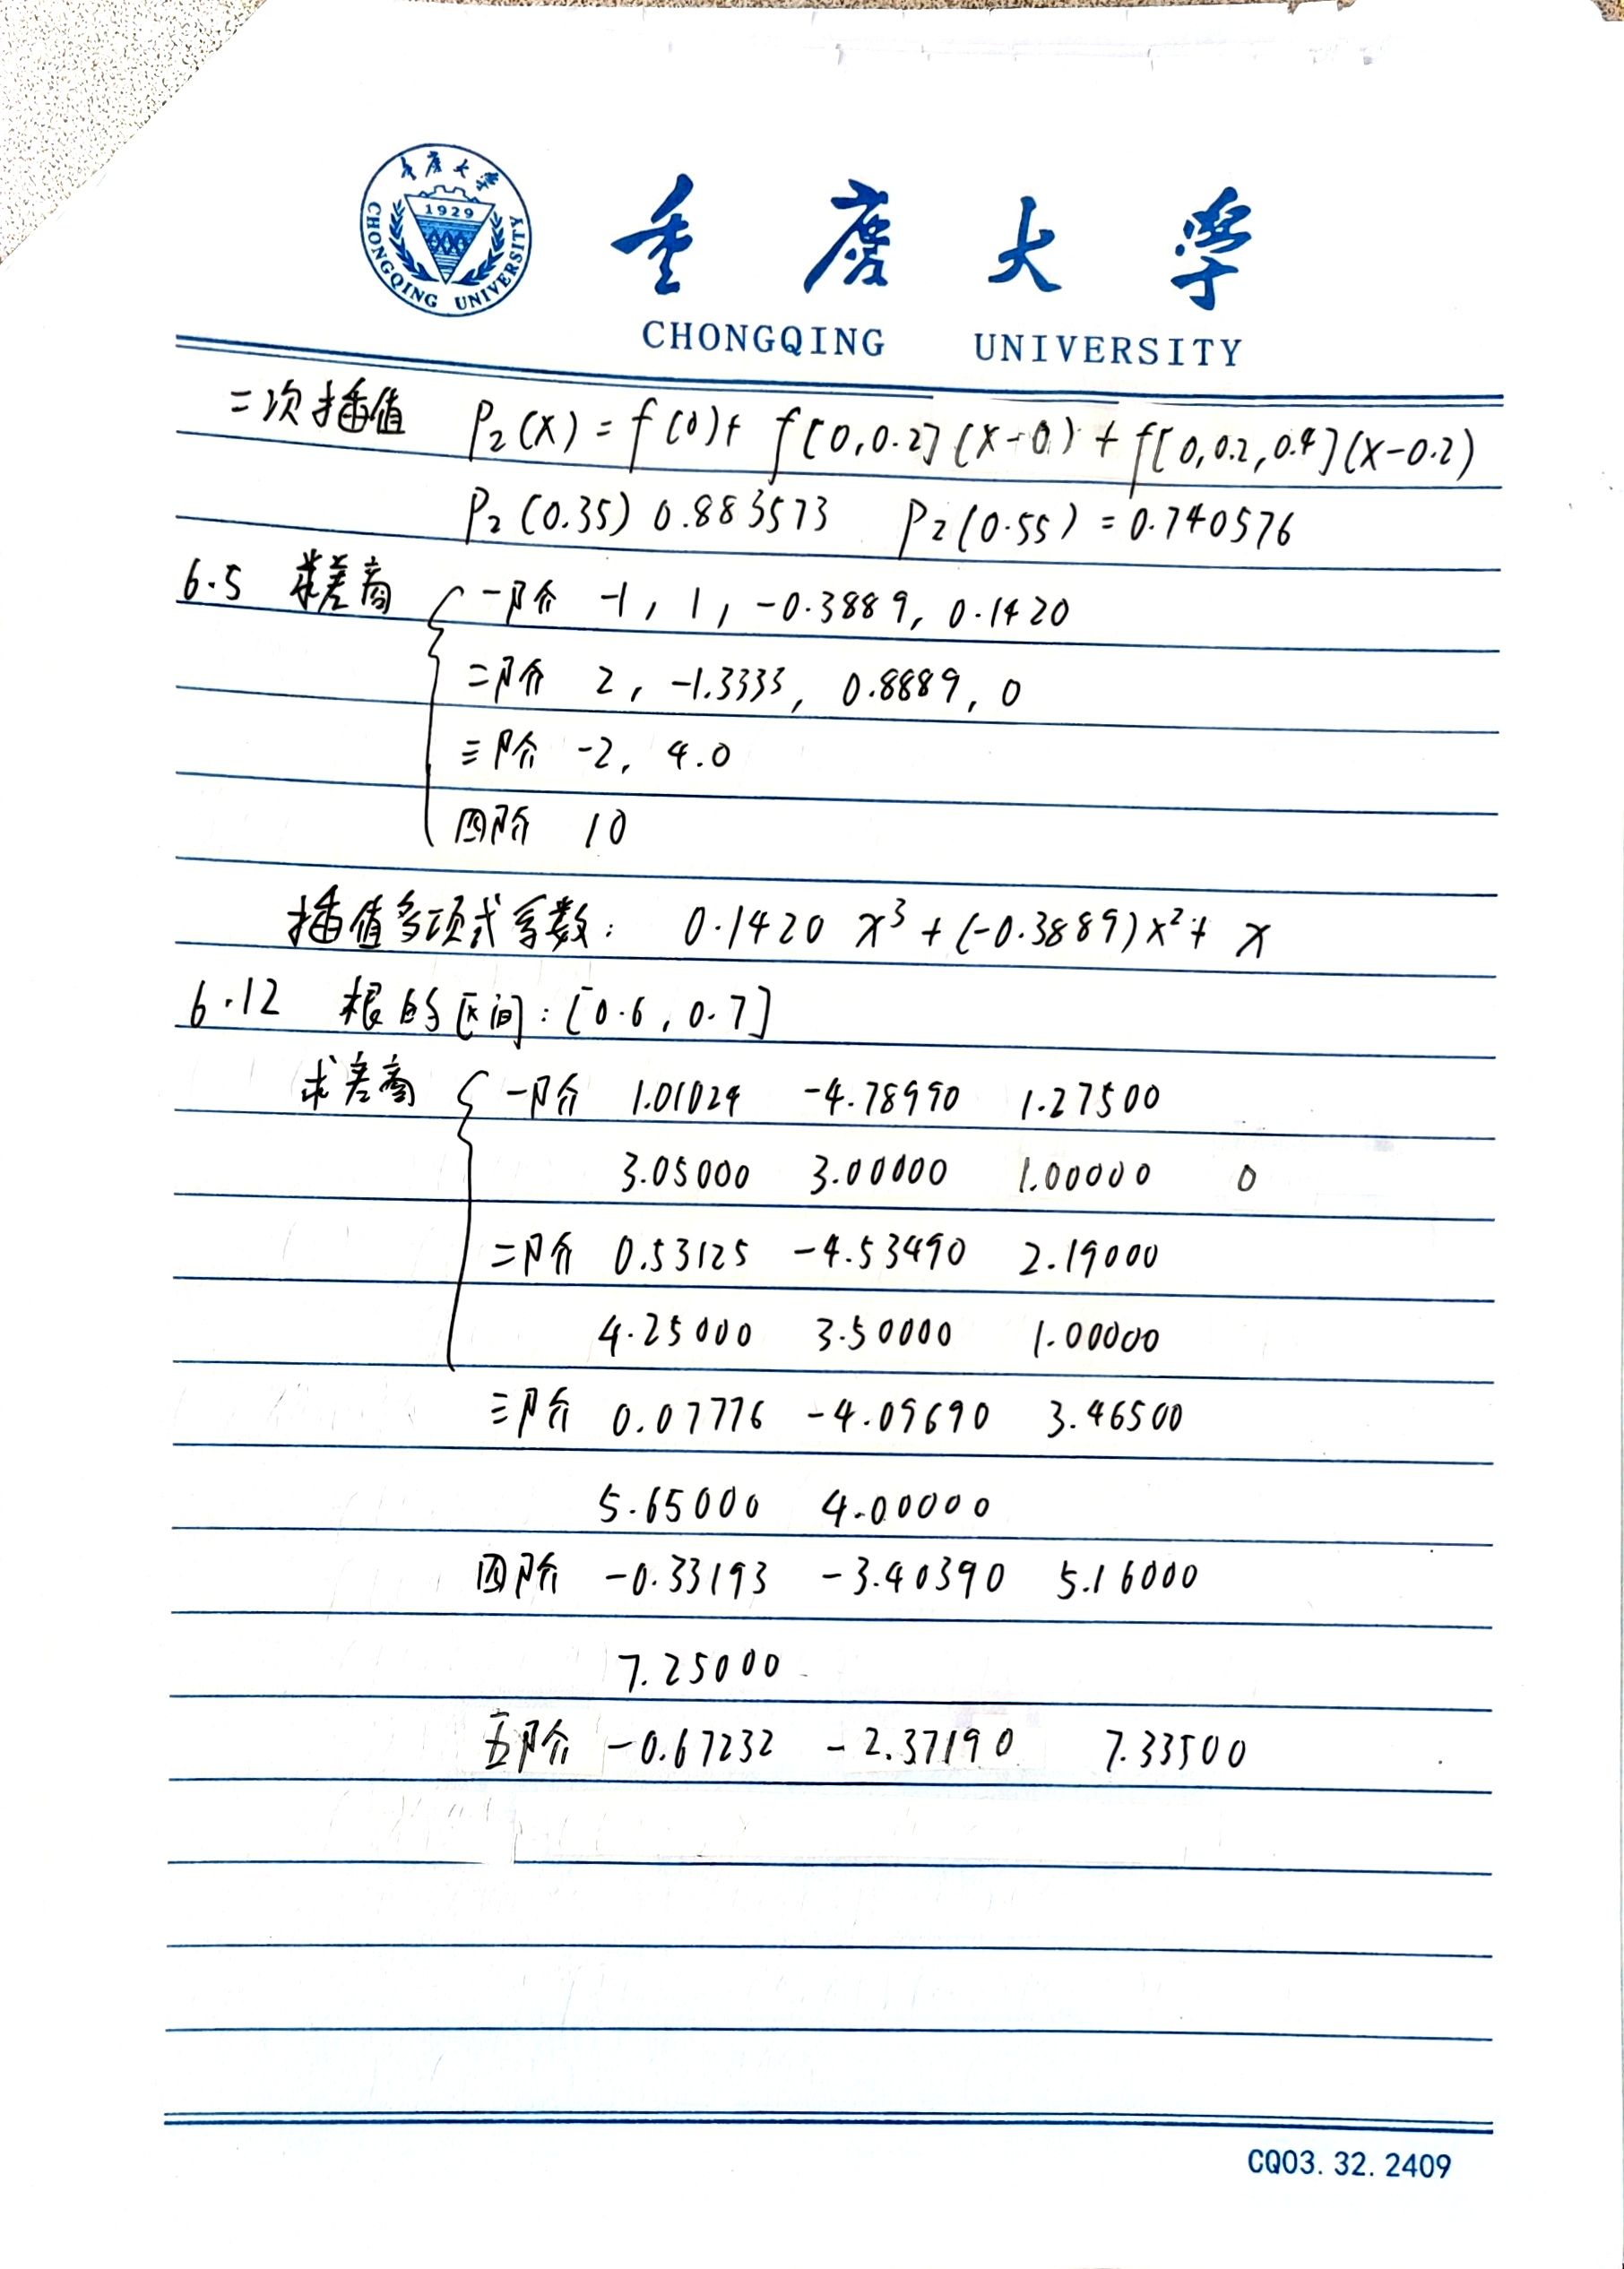 重庆大学
1929
CHONGQING UNIVERSITY
重庆大学
CHONGQING UNIVERSITY
二次插值 P₂(x) = f(0)+ f[0,0.2](x-0) + f[0,0.2,0.4](x-0.2)
P₂(0.35) 0.883573 P₂(0.55) = 0.740576
6.5 求差商 { 一阶 -1, 1, -0.3889, 0.1420
二阶 2, -1.3333, 0.8889, 0
三阶 -2, 4.0
四阶 10
插值多项式系数: 0.1420 x³ + (-0.3889)x² + x
6.12 根的区间: [0.6, 0.7]
求差商 { 一阶 1.01024 -4.78990 1.27500
3.05000 3.00000 1.00000 0
二阶 0.53125 -4.53490 2.19000
4.25000 3.50000 1.00000
三阶 0.07776 -4.09690 3.46500
5.65000 4.00000
四阶 -0.33193 -3.40390 5.16000
7.25000
五阶 -0.67232 -2.37190 7.33500
CQ03.32.2409